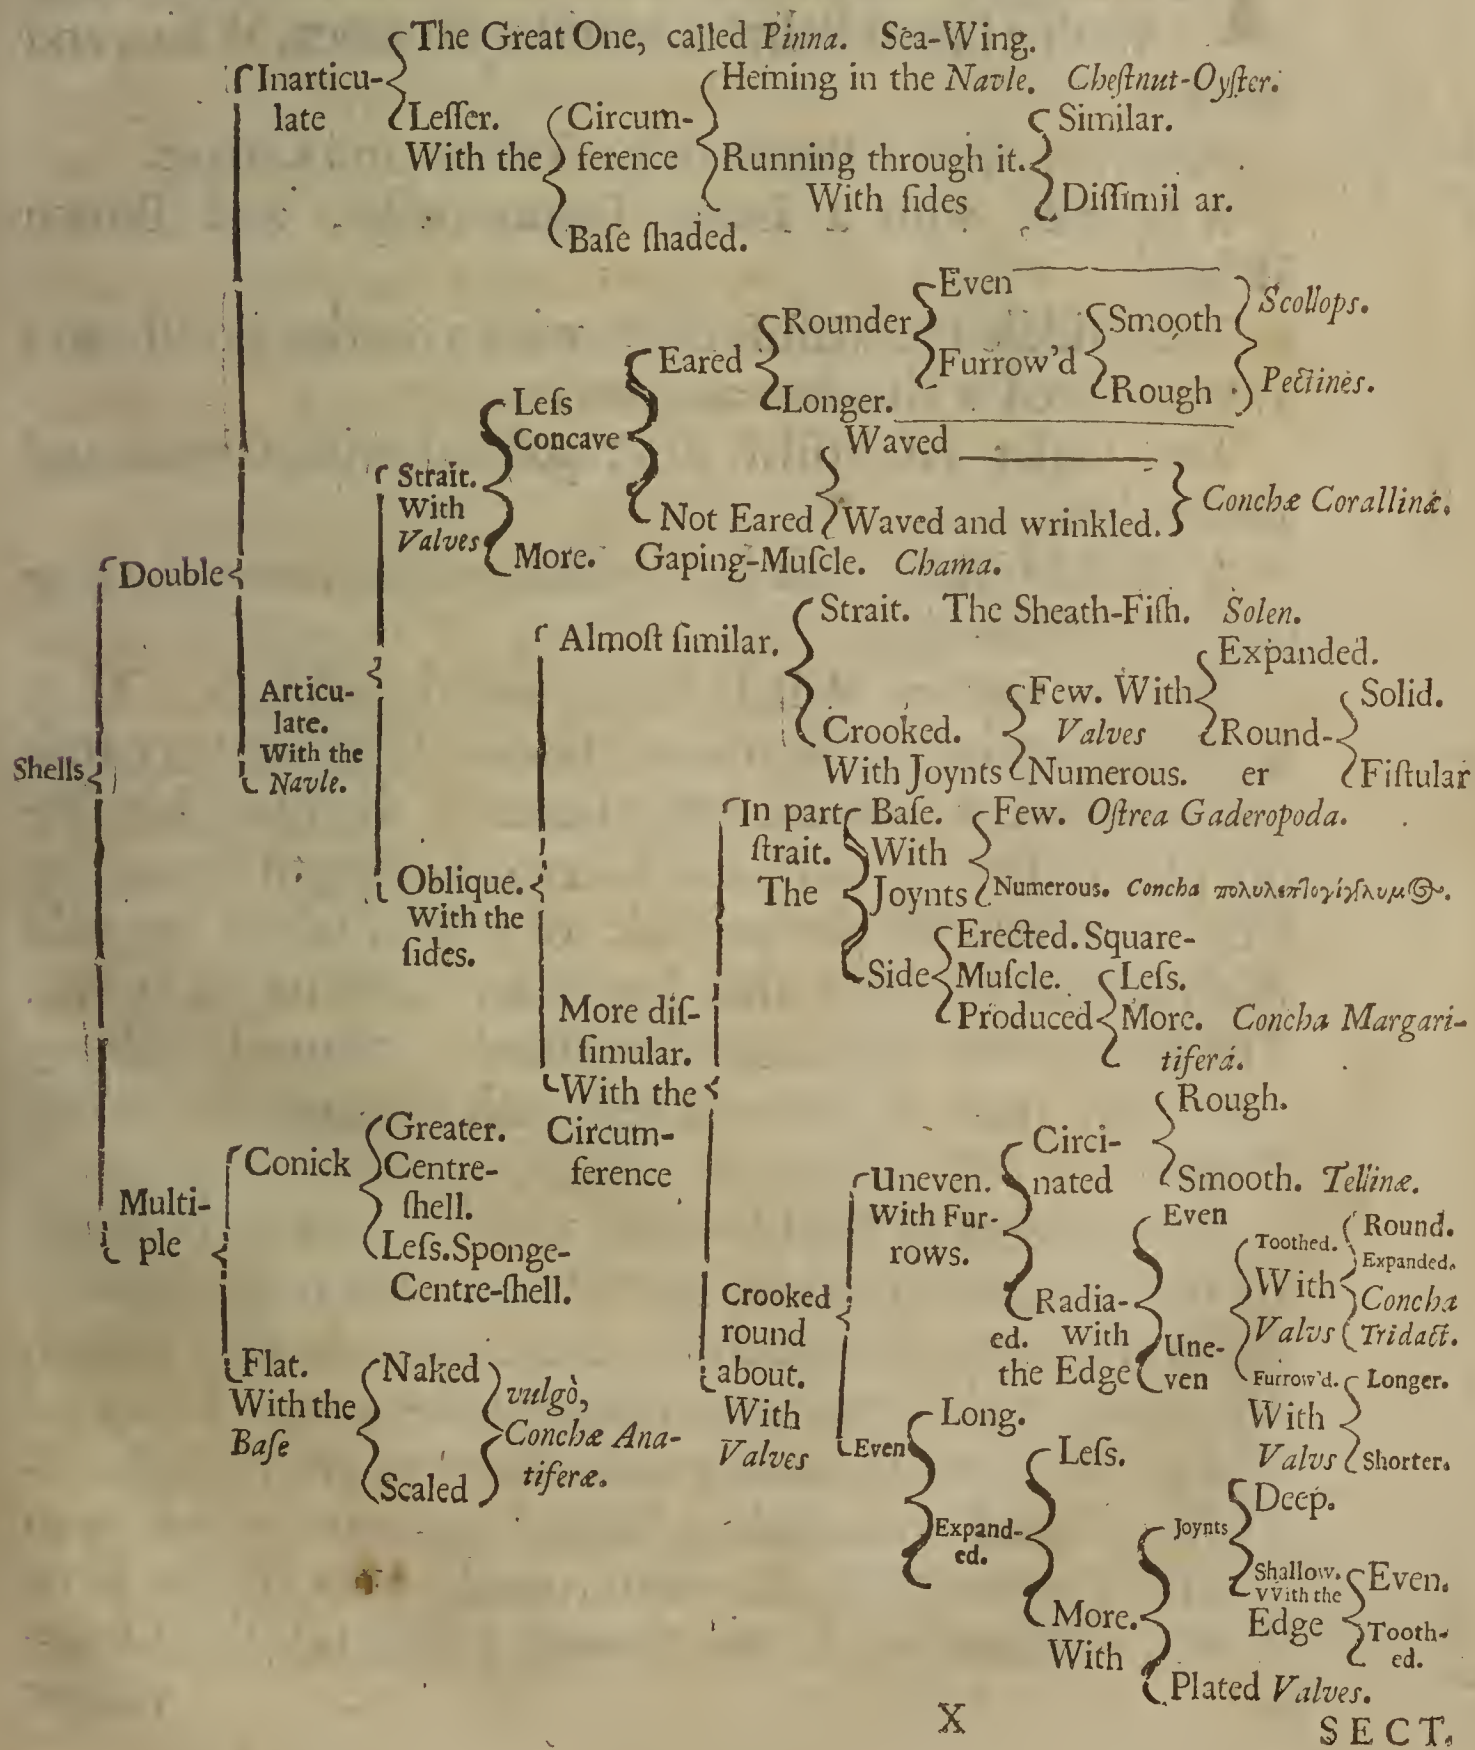 The Great One, called Pinna. Sea-Wing.
Inarticu-
late
Leſſer.
With the
Circum-
ference
Heming in the Navle. Cheſtnut-Oyſter.
Running through it.
With ſides
Similar.
Diſſimil ar.
Baſe ſhaded.
Shells
Double
Articu-
late.
With the
Navle.
Strait.
With
Valves
Leſs
Concave
Eared
Rounder
Even
Furrow'd
Smooth
Rough
Scollops.
Pectines.
Longer.
Not Eared
Waved
Waved and wrinkled.
Conchæ Corallinæ.
More. Gaping-Muſcle. Chama.
Oblique.
With the
ſides.
Almoſt ſimilar.
Strait. The Sheath-Fiſh. Solen.
Crooked.
With Joynts
Few. With
Valves
Expanded.
Round-
er
Solid.
Fiſtular
Numerous.
More diſ-
ſimular.
With the
Circum-
ference
In part
ſtrait.
The
Baſe.
With
Joynts
Few. Oſtrea Gaderopoda.
Numerous. Concha
Side
Erected. Square-
Muſcle.
Produced
Leſs.
More. Concha Margari-
tifera.
Crooked
round
about.
With
Valves
Uneven.
With Fur-
rows.
Circi-
nated
Rough.
Smooth. Tellinæ.
Radia-
ed. With
the Edge
Even
Une-
ven
Toothed.
With
Valvs
Round.
Expanded.
Concha
Tridact.
Furrow'd.
With
Valvs
Longer.
Shorter.
Even
Long.
Expand-
ed.
Leſs.
More.
With
Joynts
Deep.
Shallow.
VVith the
Edge
Even.
Tooth-
ed.
Plated Valves.
Multi-
ple
Conick
Greater.
Centre-
ſhell.
Leſs. Sponge-
Centre-ſhell.
Flat.
With the
Baſe
Naked
Scaled
vulgò,
Conchæ Ana-
tiferæ.
X
SECT.